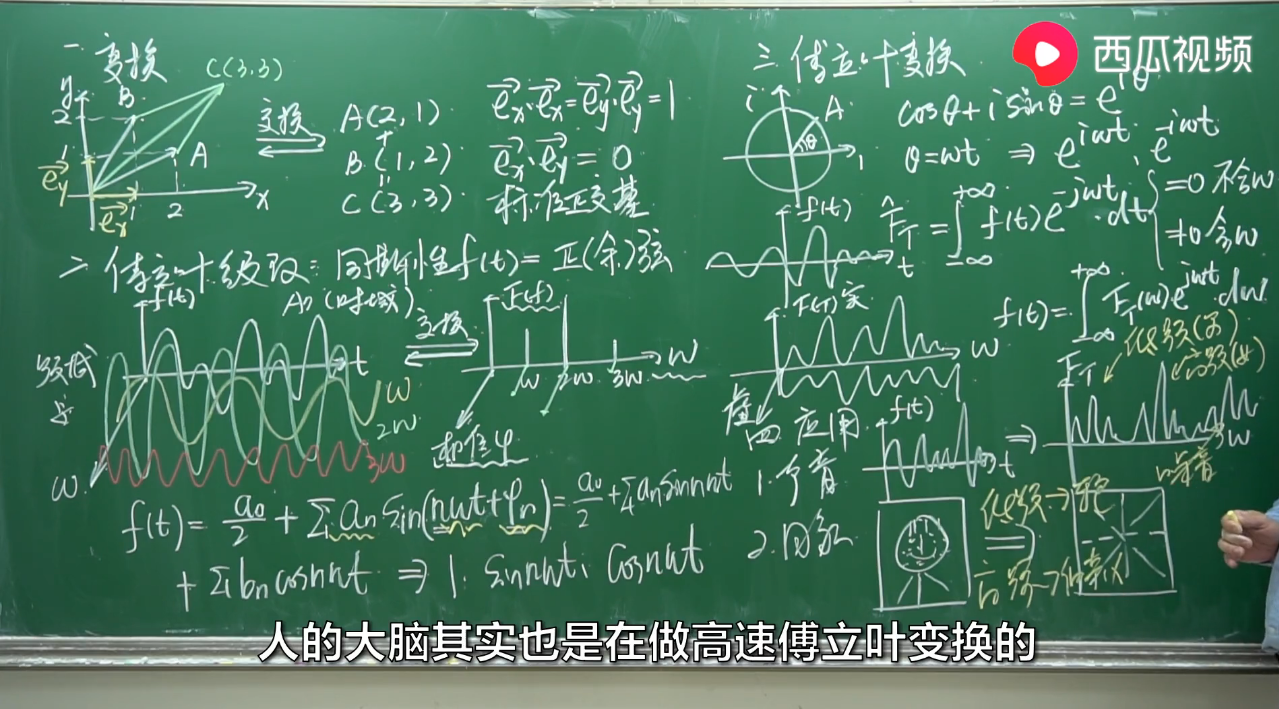 西瓜视频
一 变换
y
C(3,3)
B
2
1
A
e⃗y
e⃗x
1
2
x
变换
A(2,1)
+
B(1,2)
=
C(3,3)
e⃗x·e⃗x=e⃗y·e⃗y=1
e⃗x·e⃗y=0
标准正交基
二 傅立叶级数: 周期性f(t)=正(余)弦
f(t)
An(时域)
t
ω
2ω
3ω
ω
变换
F(f)
ω 2ω 3ω
ω
相位φ
f(t)= a₀/2 + Σ aₙ sin(nωt+φₙ)= a₀/2 +Σ aₙ sin nωt
+ Σ bₙ cos nωt ⇒ 1. sin nωt, cos nωt
三 傅立叶变换
i
A
θ
1
cosθ+i sinθ=e^{iθ}
θ=ωt ⇒ e^{iωt}, e^{-iωt}
f(t)
t
F̂_T=∫_{-∞}^{+∞} f(t)e^{-jωt}·dt {=0 不含ω
≠0 含ω
f(t)=∫_{-∞}^{+∞} F_T(ω)e^{jωt}·dω
F(f)实
ω
虚
四 应用
1.
f(t)
t
⇒
F_T
低频(男)
高频(女)
ω
噪音
2. 图象
低频→
高频→
人的大脑其实也是在做高速傅立叶变换的